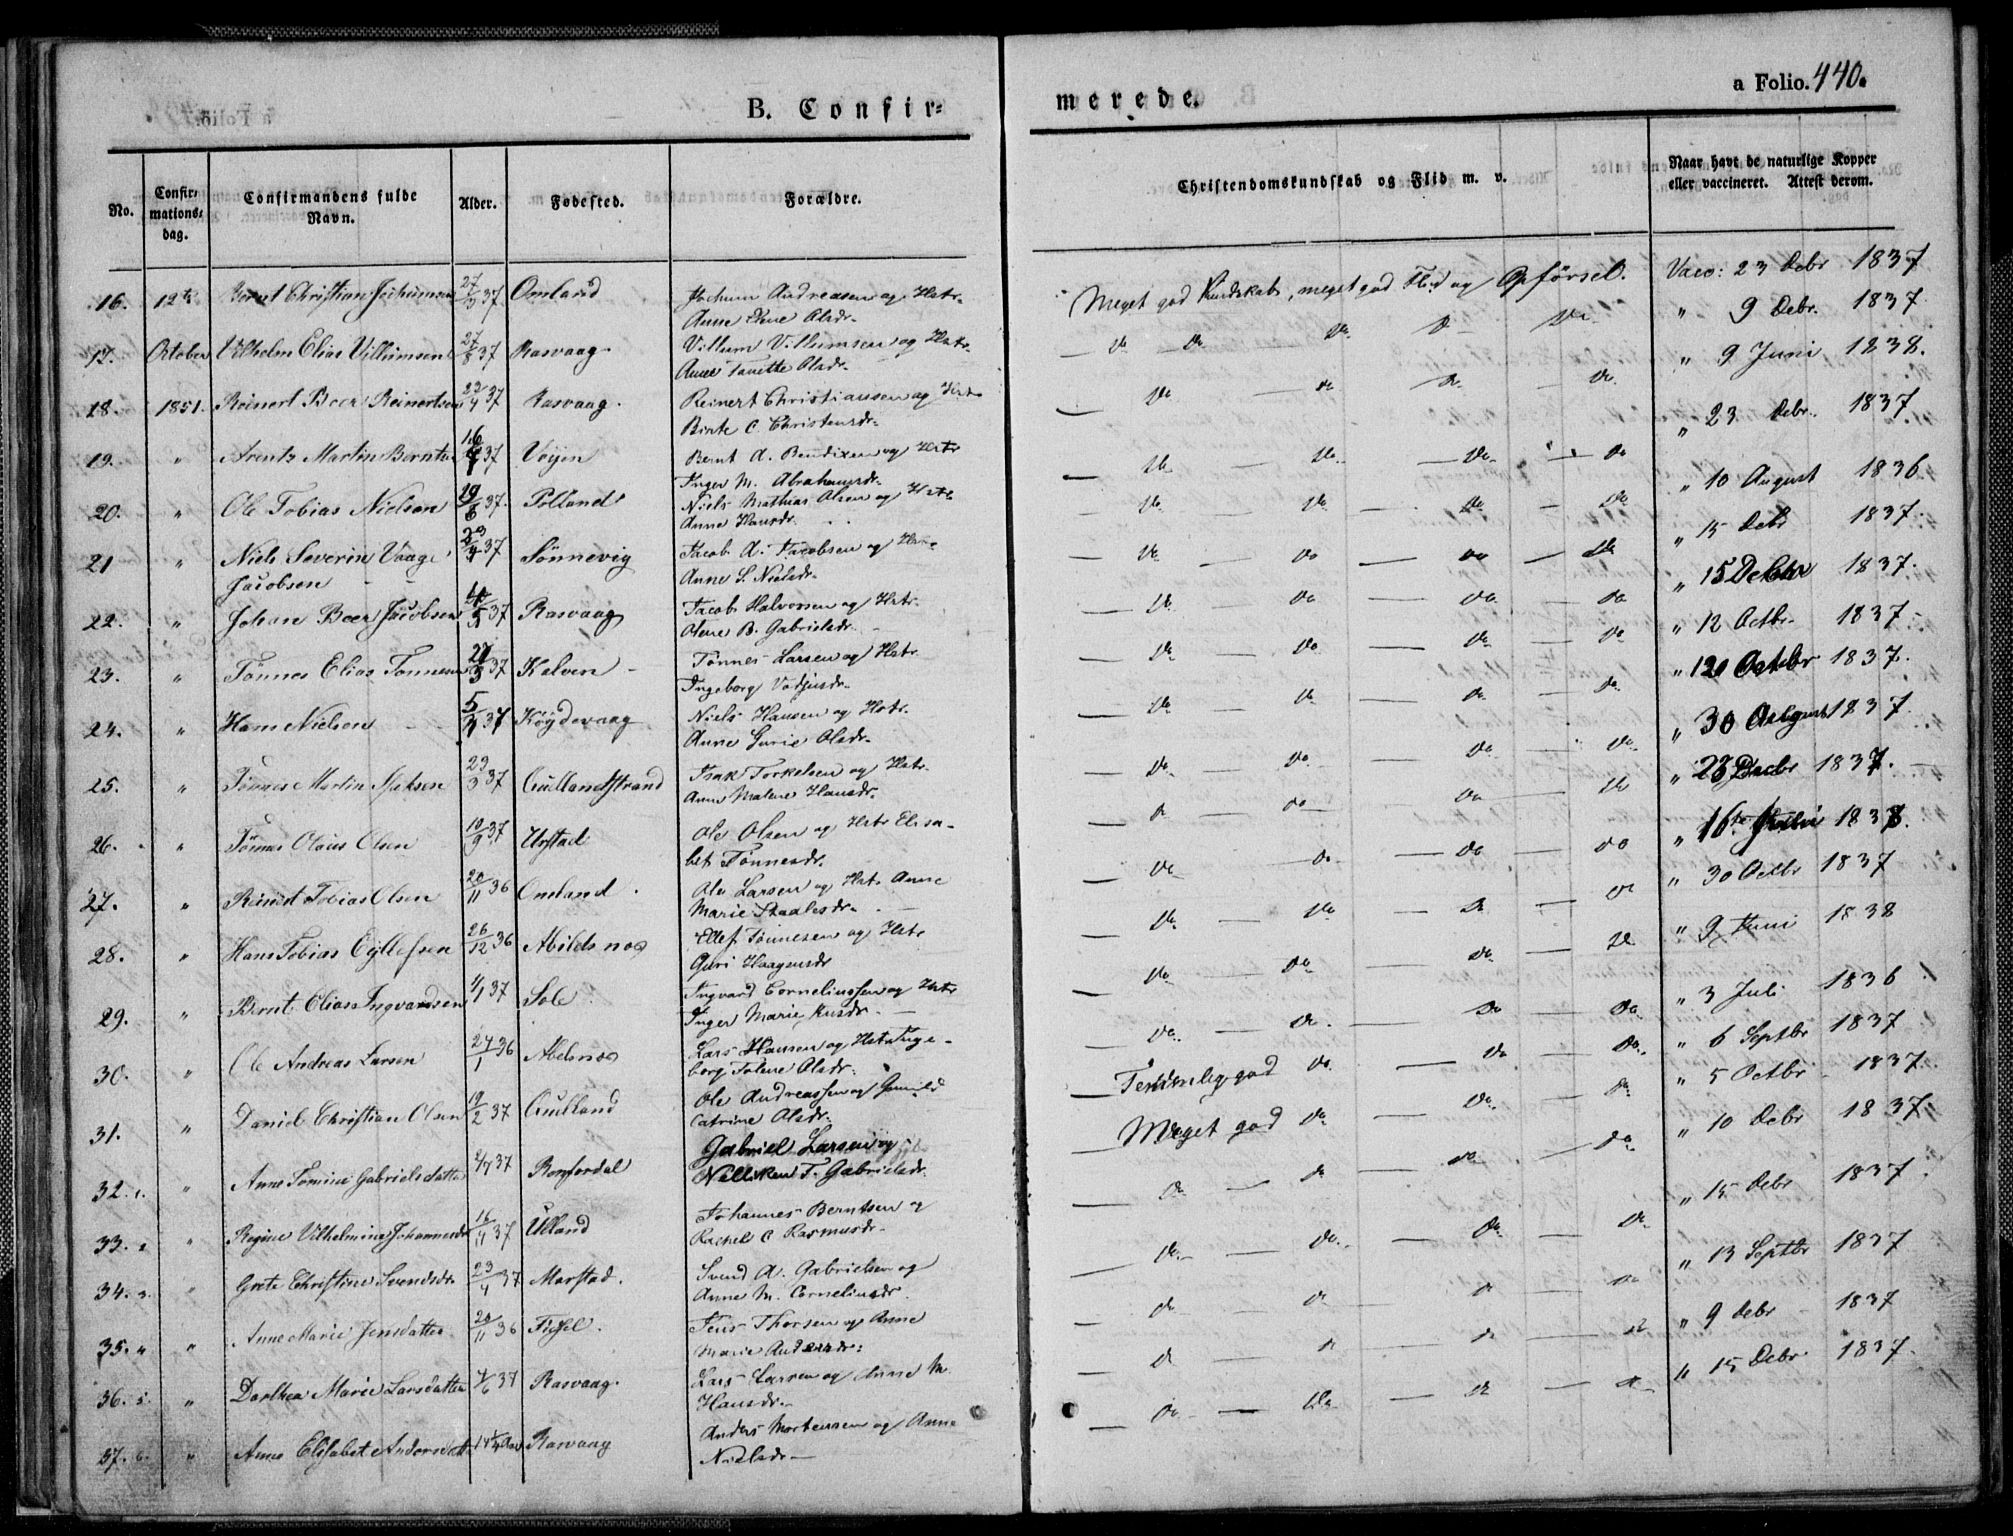 B. Confir=
merede.
a Folio. 440.
No.
Confir=
mations=
dag.
Confirmandens fulde
Navn.
Alder.
Fødested.
Forældre.
Christendomskundskab og Flid m. v.
Naar havt de naturlige Kopper
eller vaccineret. Attest derom.
16. 12te Bernt Christian Jochumsen 27/3 37 Omland Jochum Andreasen og Hstr. Meget god Kundskab, meget god Flid og Opførsel. Vacc: 23 Debr 1837
Anne Olsdr.
17. October Vilhelm Elias Villumsen 27/8 37 Rasvaag. Villum Villumsen og Hstr. Do Do Do Do Do " 9 Debr. 1837
Anne Tanette Olsdr.
18. 1851. Reinert Beer Reinertsen 23/4 37 Rasvaag. Reinert Christiansen og Hstr Do do do do " 9 Juni 1838.
Birte C. Christensdr.
19. " Arents Martin Berntsen 16/ 37 Vøyen Bernt A. Bendixen og Hstr Do Do Do Do " 23 Debr. 1837
Inger M. Abrahamsdr.
20. " Ole Tobias Nielsen 19/8 37. Polland Niels Mathias Olsen og Hstr Do Do Do Do " 10 August 1836
Anne Hansdr.
21 " Niels Severin Vaage 37 Sønnevig Jacob A. Jacobsen og Hstr Do do do Do " 15 Debr 1837.
Jacobsen Anne S. Nielsdr.
22. " Johan Beer Jacobsen /5 37 Rasvaag Jacob Halvorsen og Hstr. Do Do Do Do " 15 Debr 1837.
Olene B. Gabrielsdr.
23. " Tønnes Elias Tønnesen 37 Kalven Tønnes Larsen og Hstr. Do Do Do Do " 12 Octbr. 1837
Ingeborg
24. " Hans Nielsen 5/ 37 Køydevaag Niels Hansen og Hstr. Do Do Do Do " Octbr 1837.
Anne Gurie Olsdr.
25. " Tønnes Martin Isaksen 23/3 37 Gullandstrand Isak Torkelsen og Hstr. Do Do Do Do " 30 August 1837
Anne Malene Hansdr.
26. " Tønnes Olaus Olsen 10/9 37 Urstad Ole Olsen og Hstr Elisa- Do Do Do Do " 23 Debr 1837.
bet Tønnesdr.
27. " Reinert Tobias Olsen 20/11 36 Omland Ole Larsen og Hstr Anne Do Do Do Do " 16te 1838.
Marie Staalesdr.
28. " Hans Tobias Eyllefsen 26/12 36 Abildsnes Ellef Tønnesen og Hstr Do Do Do Do " 30 Octbr 1837
Guri Haagensdr
29. " Bernt Elias Ingvardsen 4/1 37 Sole Ingvard Corneliussen og Hstr Do Do Do Do " 9 Juni 1838
Inger Marie
30. " Ole Andreas Larsen 24/1 36 Abelsnes Lars Hansen og Hstr Inge- Temmelig god do. Do Do " 3 Juli 1836
borg Tolene Olsdr.
31. " Daniel Christian Olsen 19/2 37 Gulland Ole Andreassen og Gunild Meget god Do Do Do " 6 Septbr 1837
Catrine Olsdr.
32. 1. " Anne Tomine Gabrielsdatter 2/7 37 Gabriel Larsen og Do Do Do Do " 5 Octbr 1837
Nilliken T. Gabrielsdr.
33. 2 " Regine Vilhelmine Johannesdr 16/11 37 Ulland Johannes Berntsen og Do Do Do Do " 10 Debr 1837
Rachel C Rasmusdr.
34. 3. " Grete Christine Svendsdr. 23/4 37 Marstad. Svend A. Gabrielsen og Do Do Do Do " 15 Debr 1837
Anne M. Corneliusdr.
35. 4 " Anne Marie Jensdatter 20/11 36 Fidsel. Jens Thorsen og Anne Do Do Do Do " 13 Septbr 1837
Marie Andersdr:
36. 5. " Dorthea Marie Larsdatter 4/6 37 Rasvaag. Lars Larsen og Anne M. Do Do Do Do " 9 debr 1837
Hansdr.
37. 6. " Anne Elisabet Andersdatter 14 Aar Rasvaag Anders Mortensen og Anne " 15 Debr 1837.
Nielsdr.